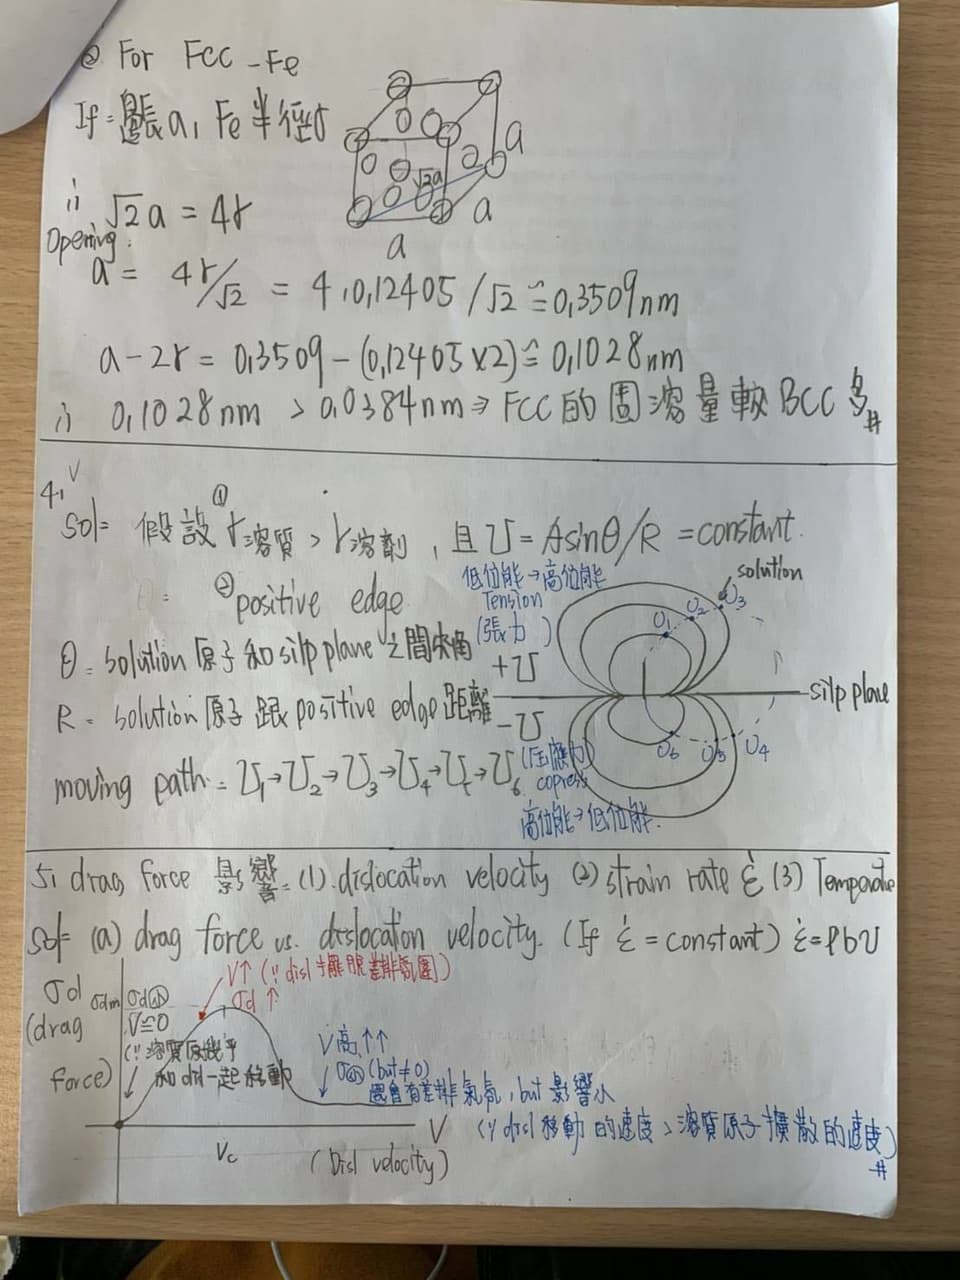 ② For FCC - Fe
If = 邊長a, Fe半徑r
∴ √2 a = 4r
Opening:
a = 4r/√2 = 4.0,12405 /√2 ≒ 0,3509nm
a - 2r = 0,3509 - (0,12405×2) ≒ 0,1028nm
∴ 0,1028nm > 0,0384nm ⇒ FCC的固溶量較BCC多 #
√2a
a
a
a
4, V
Sol= 假設 ① r溶質 > r溶劑, 且 U = Asinθ/R = constant.
② positive edge
θ = solution原子和silp plane之間夾角
R = solution原子跟positive edge距離
moving path = U1→U2→U3→U4→U5→U6
低位能→高位能
Tension
(張力)
+U
-U
(壓應力)
copress
高位能→低位能.
solution
U1 U2 U3
silp plane
U6 U5 U4
5, drag force 影響=(1).dislocation velocity (2) strain rate ε̇ (3) Temperature
Sol= (a) drag force vs. dislocation velocity. (If ε̇ = constant) ε̇=ρbv
σd
(drag
force)
σdm
σd小
V≒0
(∵溶質原幾乎
和disl一起移動
V↑ (∵disl 擺脫差排氛圍)
σd ↑
V高↑↑
σ小 (but≠0)
還會有差排氣氛, but影響小
(∵disl移動的速度 > 溶質原子擴散的速度)
#
V
Vc
(Disl velocity)